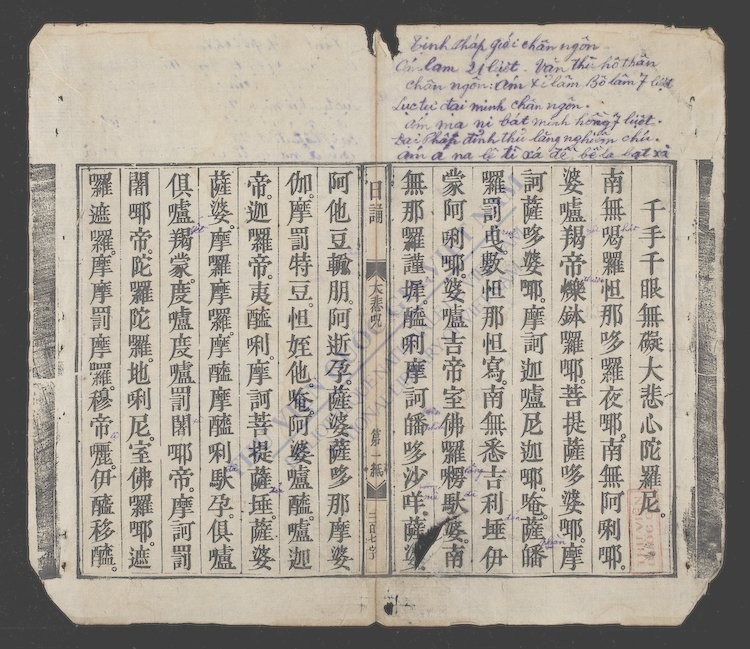 Tịnh Pháp giới chân ngôn.
Án lam 21 liệt. Văn thù hộ thân
chân ngôn: Án xỉ lâm Bộ lâm 7 liệt
Lục tự đại minh chân ngôn.
Án ma ni bát minh hồng 7 liệt.
Đại Phật đỉnh thủ lăng nghiêm chú.
Án a na lệ tì xá đề bệ la bạt xà
千手千眼無礙大悲心陀羅尼。
南無喝羅怛那哆羅夜㖿。南無阿唎㖿。
婆嚧羯帝爍鉢羅㖿。菩提薩哆婆㖿。摩
訶薩哆婆㖿。摩訶迦嚧尼迦㖿。唵。薩皤
羅罰曳。數怛那怛寫。南無悉吉利埵伊
蒙阿唎㖿。婆嚧吉帝室佛羅楞馱婆。南
無那羅謹墀。醯唎摩訶皤哆沙咩。薩婆
日誦
大悲呪
第一紙
阿他豆輸朋。阿逝孕。薩婆薩哆那摩婆
伽。摩罰特豆。怛姪他。唵。阿婆嚧醯。嚧迦
帝。迦羅帝。夷醯唎。摩訶菩提薩埵。薩婆
薩婆。摩羅摩羅。摩醯摩醯唎馱孕。俱嚧
俱嚧羯蒙。度嚧度嚧罰闍㖿帝。摩訶罰
闍㖿帝。陀羅陀羅。地唎尼。室佛羅㖿。遮
囉遮囉。摩摩罰摩羅。穆帝囇。伊醯移醯。